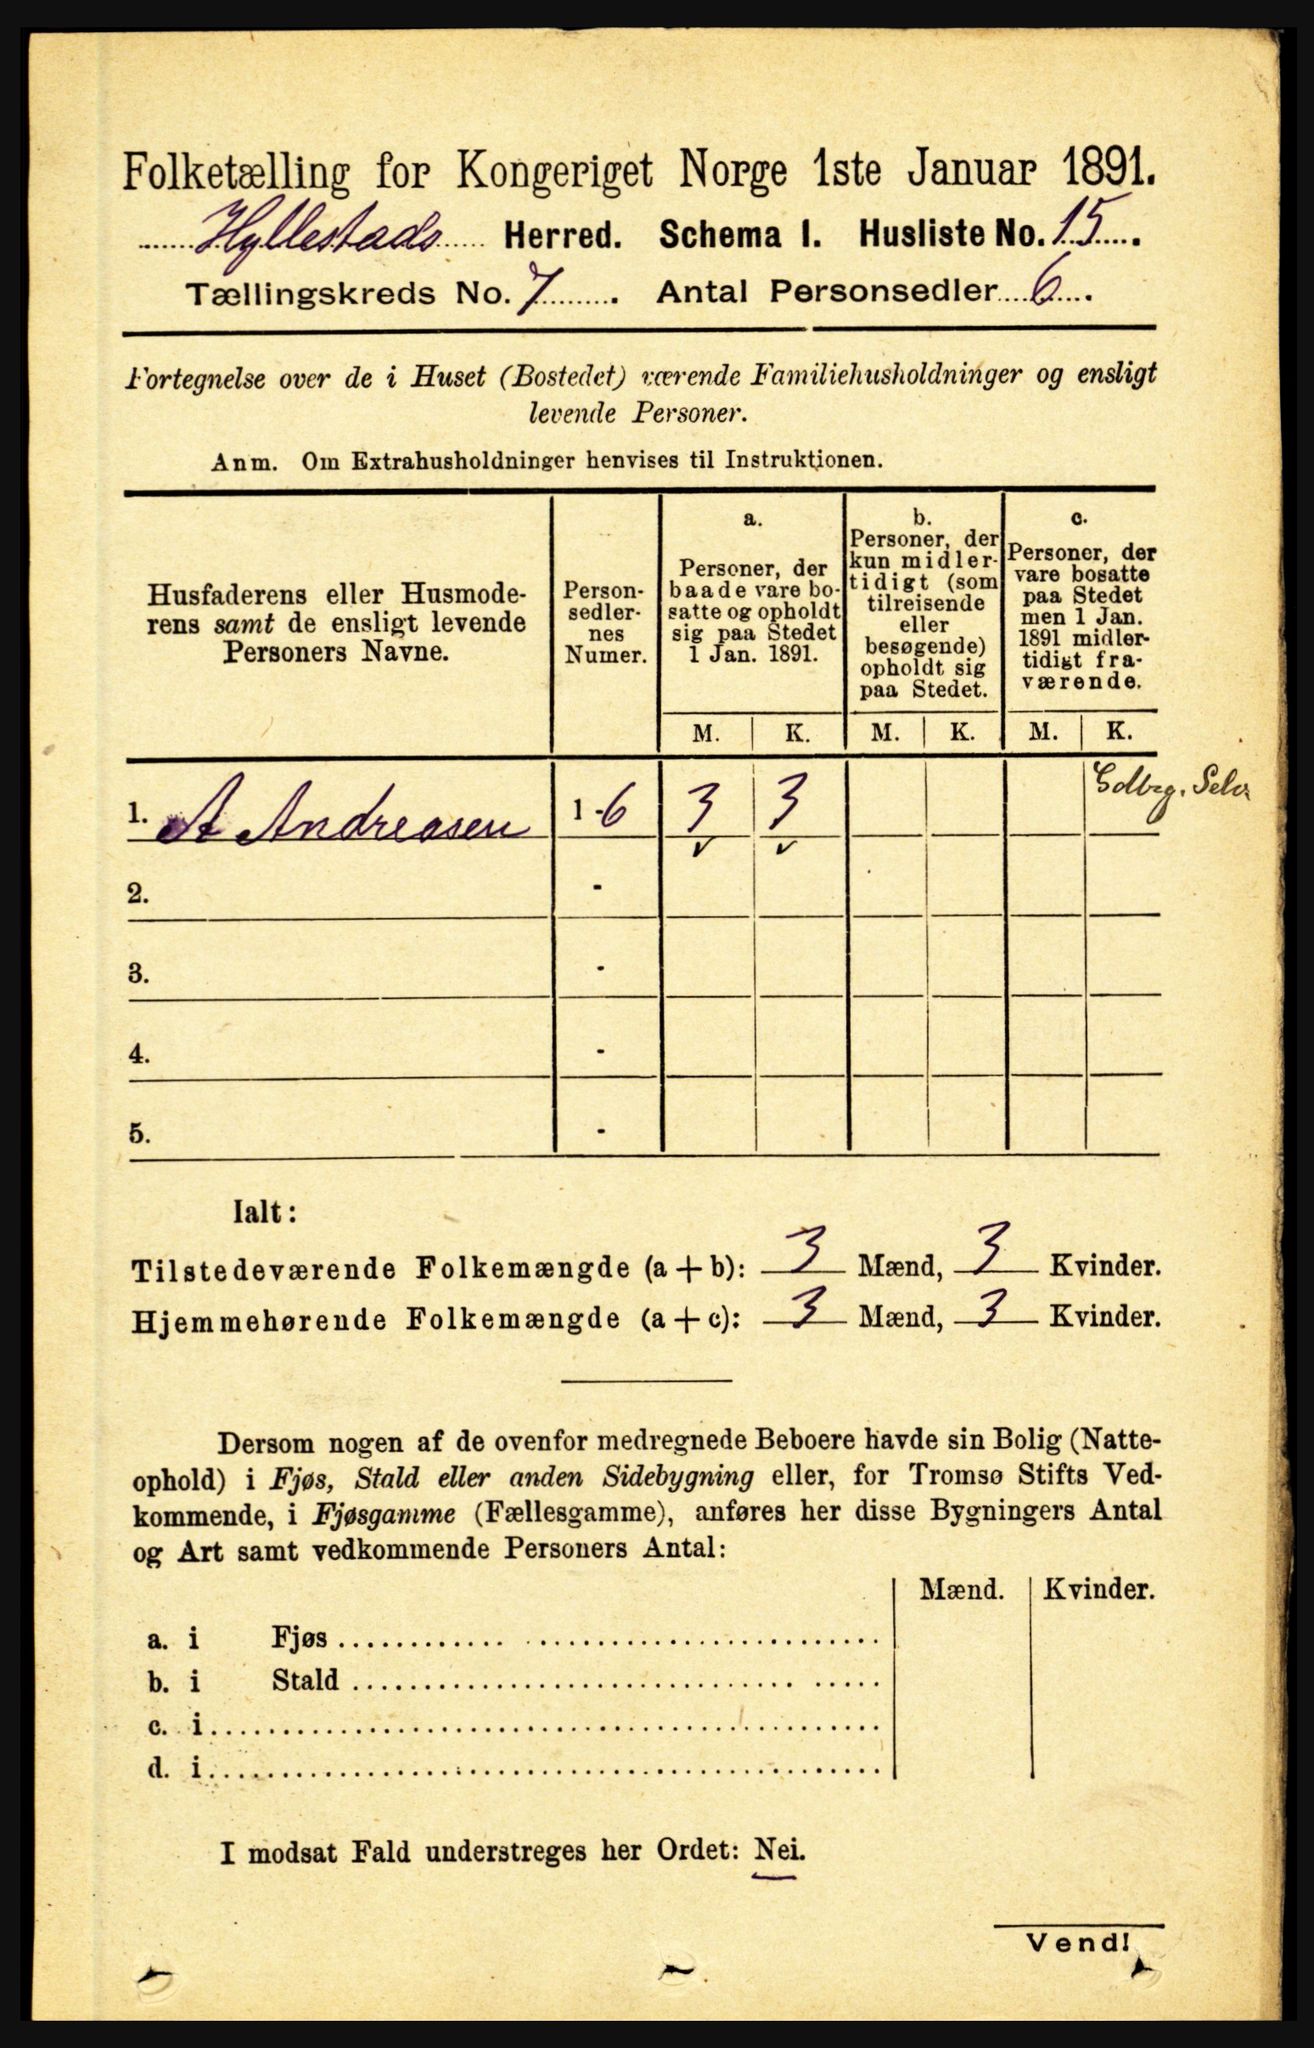 Folketælling for Kongeriget Norge 1ste Januar 1891.
Hyllestads Herred. Schema I. Husliste No. 15.
Tællingskreds No. 7. Antal Personsedler 6.
Fortegnelse over de i Huset (Bostedet) værende Familiehusholdninger og ensligt
levende Personer.
Anm. Om Extrahusholdninger henvises til Instruktionen.
Husfaderens eller Husmode-
rens samt de ensligt levende
Personers Navne.
Person-
sedler-
nes
Numer.
a.
Personer, der
baade vare bo-
satte og opholdt
sig paa Stedet
1 Jan. 1891.
b.
Personer, der
kun midler-
tidigt (som
tilreisende
eller
besøgende)
opholdt sig
paa Stedet.
c.
Personer, der
vare bosatte
paa Stedet
men 1 Jan.
1891 midler-
tidigt fra-
værende.
M. K. M. K. M. K.
1. A Andreasen 1-6 3 3
2. -
3. -
4. -
5. -
Ialt:
Tilstedeværende Folkemængde (a+b): 3 Mænd, 3 Kvinder.
Hjemmehørende Folkemængde (a+c): 3 Mænd, 3 Kvinder.
Dersom nogen af de ovenfor medregnede Beboere havde sin Bolig (Natte-
ophold) i Fjøs, Stald eller anden Sidebygning eller, for Tromsø Stifts Ved-
kommende, i Fjøsgamme (Fællesgamme), anføres her disse Bygningers Antal
og Art samt vedkommende Personers Antal:
Mænd. Kvinder.
a. i Fjøs
b. i Stald
c. i
d. i
I modsat Fald understreges her Ordet: Nei.
Vend!